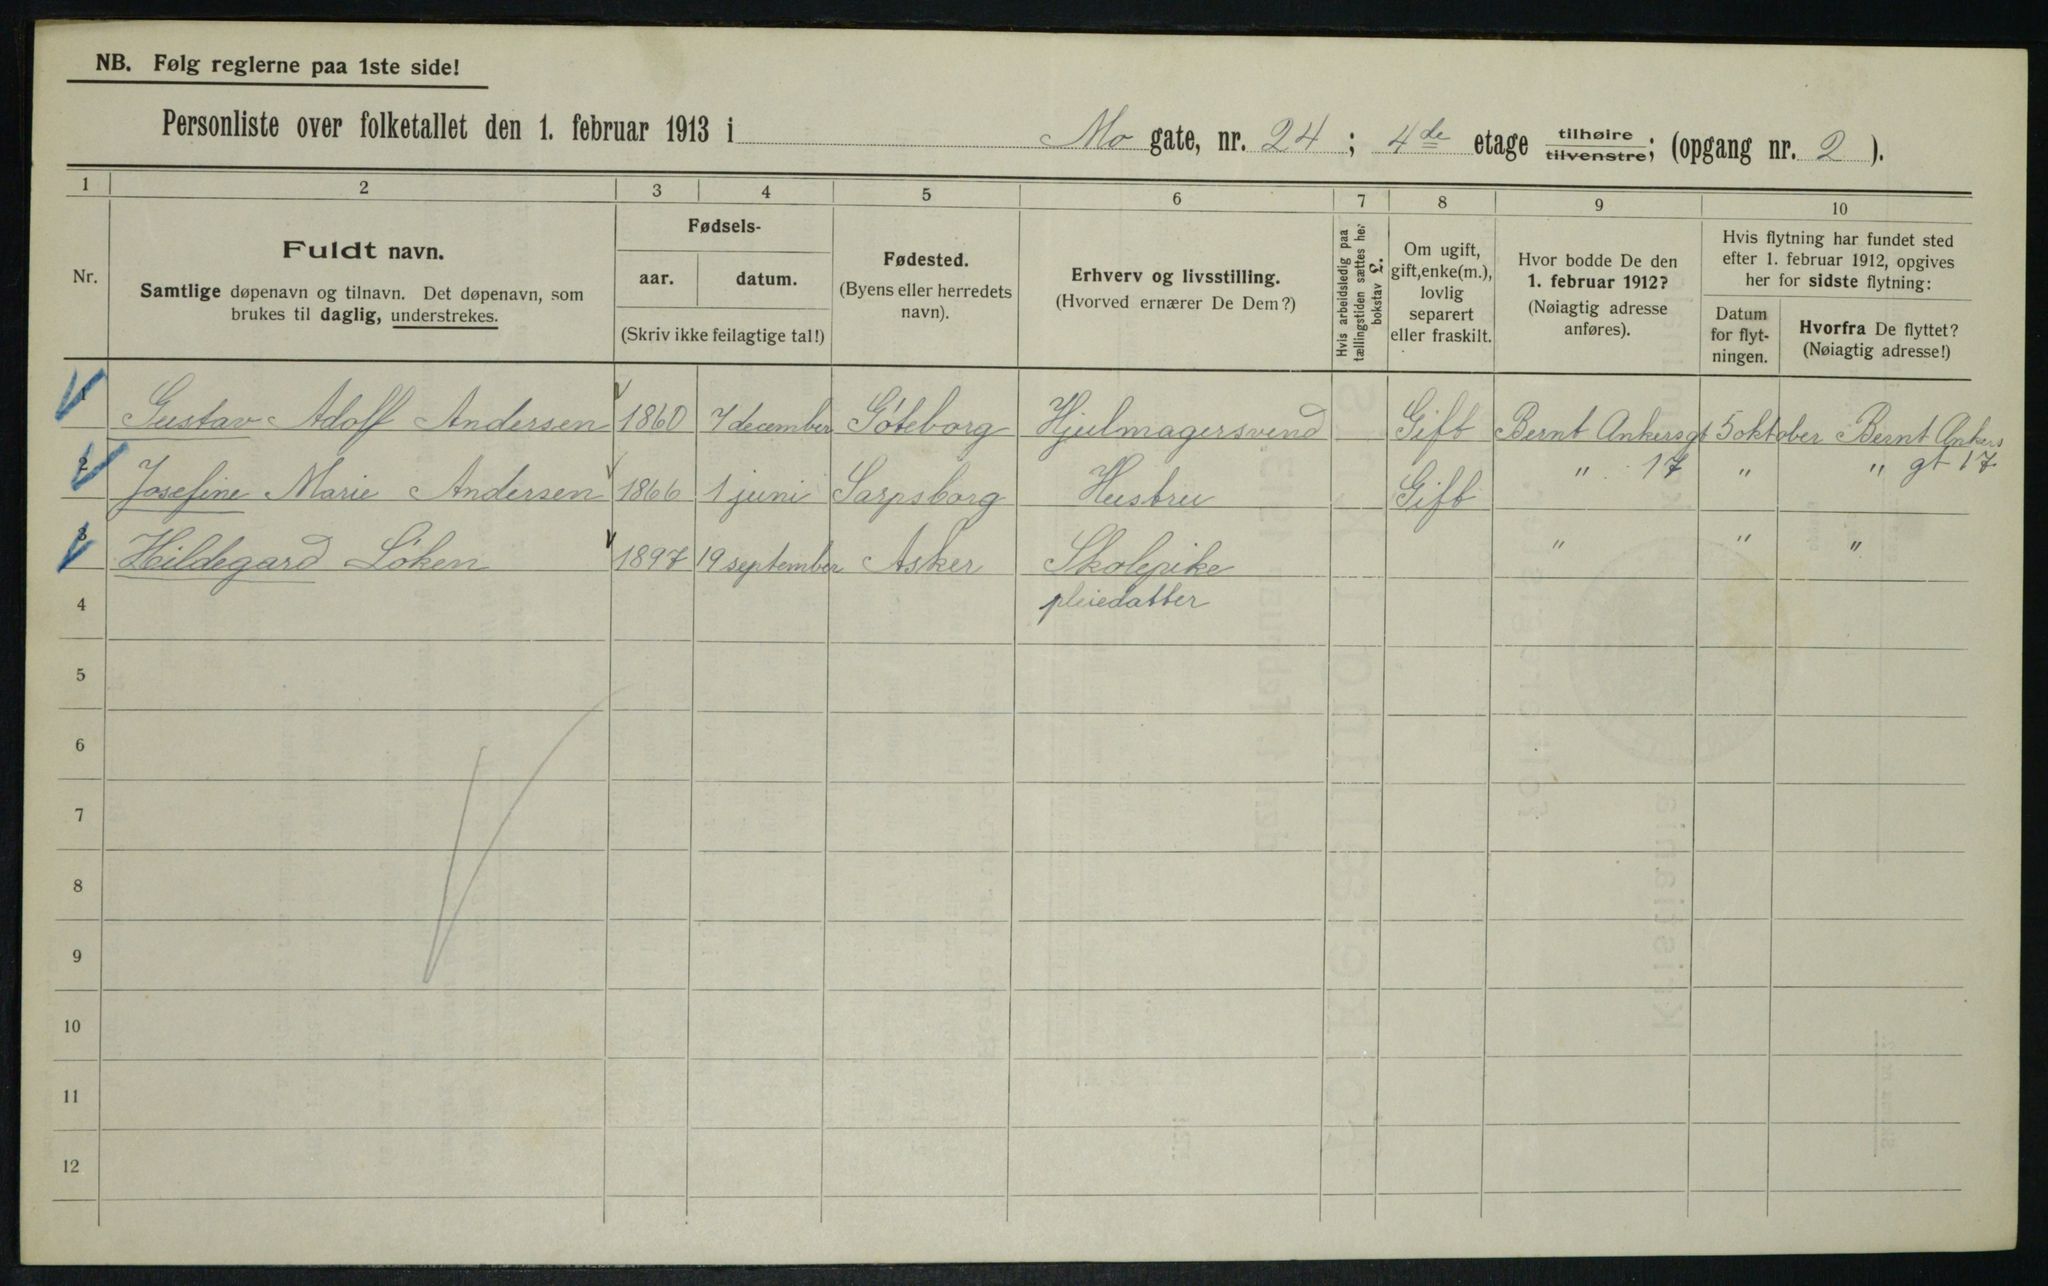 NB. Følg reglerne paa 1ste side!
Personliste over folketallet den 1. februar 1913 i Mo gate, nr. 24; 4de etage tilhøire / tilvenstre; (opgang nr. 2).
1 2 3 4 5 6 7 8 9 10
Nr.
Fuldt navn.
Samtlige døpenavn og tilnavn. Det døpenavn, som
brukes til daglig, understrekes.
Fødsels-
aar. datum.
(Skriv ikke feilagtige tal!)
Fødested.
(Byens eller herredets
navn).
Erhverv og livsstilling.
(Hvorved ernærer De Dem?)
Hvis arbeidsledig paa
tællingstiden sættes her
bokstav L.
Om ugift,
gift, enke(m.),
lovlig
separert
eller fraskilt.
Hvor bodde De den
1. februar 1912?
(Nøiagtig adresse
anføres).
Hvis flytning har fundet sted
efter 1. februar 1912, opgives
her for sidste flytning:
Datum
for flyt-
ningen.
Hvorfra De flyttet?
(Nøiagtig adresse!)
1 Gustav Adolf Andersen 1860 7 december Göteborg Hjulmagersvend Gift Bernt Ankersgt 5 oktober Bernt Ankers
" 17 " " gt 17
2 Josefine Marie Andersen 1866 1 juni Sarpsborg Husbru Gift
3 Hildegard Löken 1897 19 september Asker Skolepike " " "
4 pleiedatter
5
6
7
8
9
10
11
12